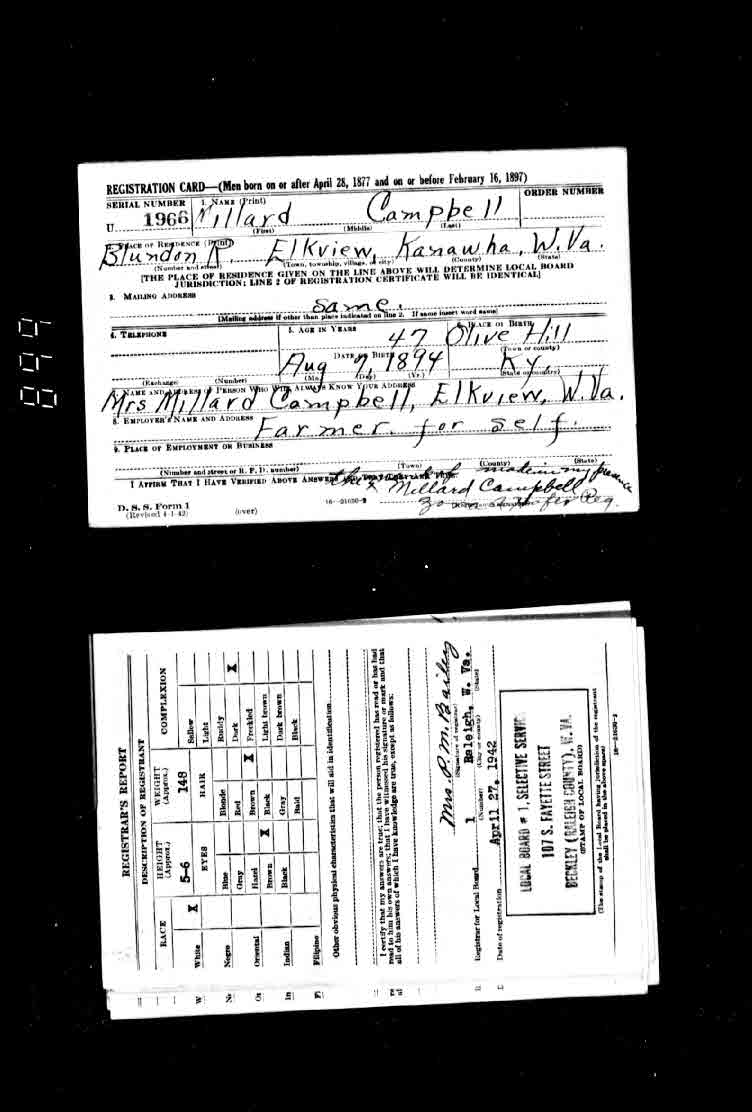 REGISTRATION CARD—(Men born on or after April 28, 1877 and on or before February 16, 1897)
SERIAL NUMBER 1. NAME (Print) ORDER NUMBER
U 1966 Millard Campbell
(First) (Middle) (Last)
2. PLACE OF RESIDENCE (Print)
Blundon R. Elkview, Kanawha, W.Va.
(Number and street) (Town, township, village, or city) (County) (State)
[THE PLACE OF RESIDENCE GIVEN ON THE LINE ABOVE WILL DETERMINE LOCAL BOARD
JURISDICTION; LINE 2 OF REGISTRATION CERTIFICATE WILL BE IDENTICAL]
3. MAILING ADDRESS
Same.
[Mailing address if other than place indicated on line 2. If same insert word same]
4. TELEPHONE 5. AGE IN YEARS 6. PLACE OF BIRTH
47 Olive Hill
DATE OF BIRTH (Town or county)
Aug 9, 1894 Ky
(Exchange) (Number) (Mo.) (Day) (Yr.) (State or country)
7. NAME AND ADDRESS OF PERSON WHO WILL ALWAYS KNOW YOUR ADDRESS
Mrs Millard Campbell, Elkview, W.Va.
8. EMPLOYER'S NAME AND ADDRESS
Farmer. for self.
9. PLACE OF EMPLOYMENT OR BUSINESS
(Number and street or R. F. D. number) (Town) (County) (State)
I AFFIRM THAT I HAVE VERIFIED ABOVE ANSWERS AND THAT THEY ARE TRUE.
made in my presence
x Millard Campbell
Reg.
D. S. S. Form 1
(Revised 4-1-42) (over) 16—21630-2
REGISTRAR'S REPORT
DESCRIPTION OF REGISTRANT
RACE HEIGHT (Approx.) WEIGHT (Approx.) COMPLEXION
5-6 148
White X EYES HAIR Sallow
Light
Negro Blue Blonde Ruddy
Gray Red Dark X
Oriental Hazel Brown X Freckled
Brown X Black Light brown
Indian Black Gray Dark brown
Bald Black
Filipino
Other obvious physical characteristics that will aid in identification
I certify that my answers are true; that the person registered has read or has had
read to him his own answers; that I have witnessed his signature or mark and that
all of his answers of which I have knowledge are true, except as follows:
Mrs. P. M. Bailey
(Signature of registrar)
Registrar for Local Board 1 Raleigh, W. Va.
(Number) (City or county) (State)
Date of registration April 27, 1942
LOCAL BOARD # 1, SELECTIVE SERVICE
107 S. FAYETTE STREET
BECKLEY (RALEIGH COUNTY), W. VA.
(STAMP OF LOCAL BOARD)
(The stamp of the Local Board having jurisdiction of the registrant
shall be placed in the above space)
16—21630-2